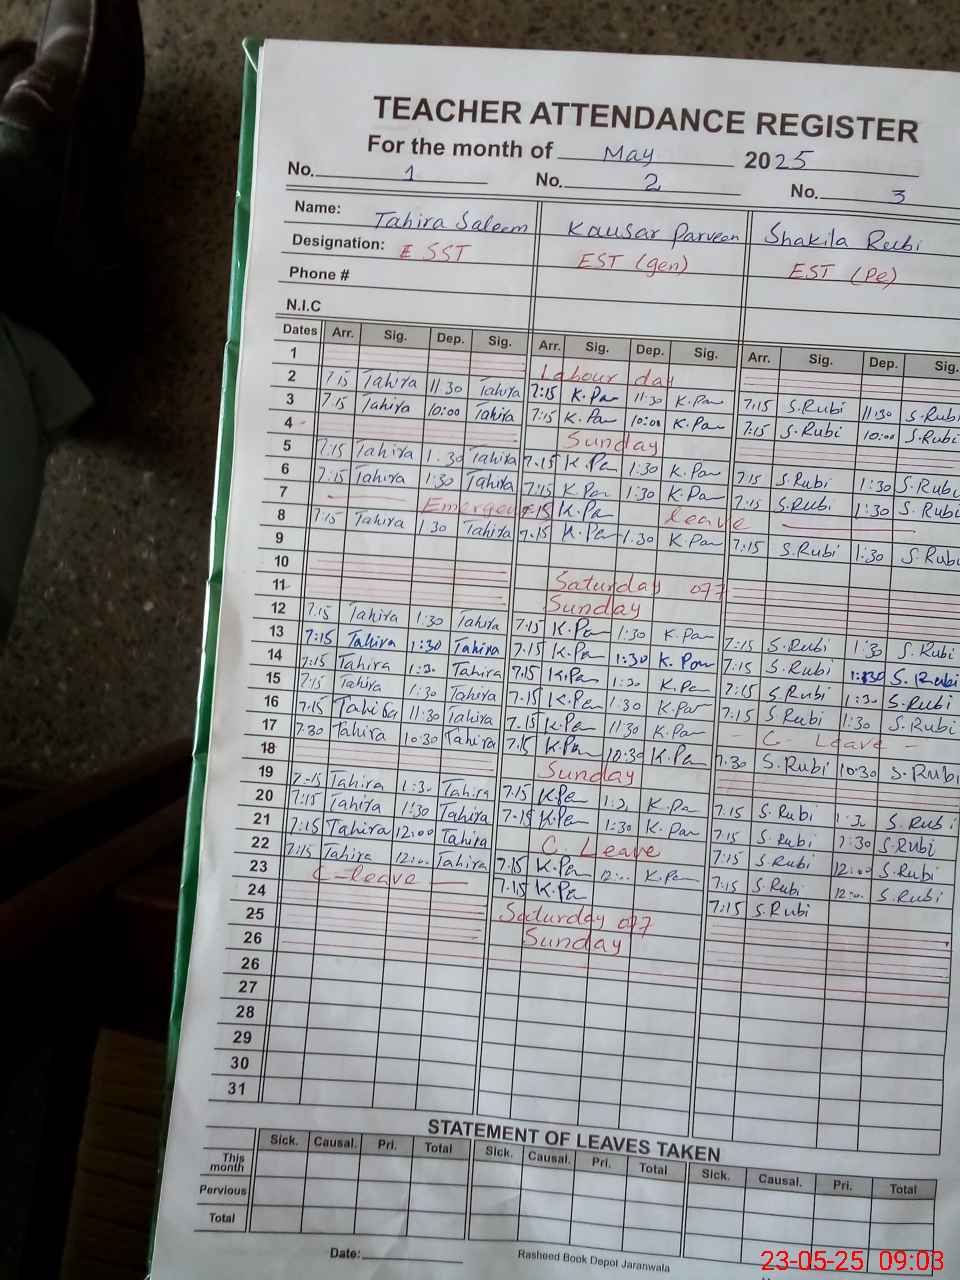 TEACHER ATTENDANCE REGISTER
For the month of May 2025
No. 1 No. 2 No. 3
Name: Tahira Saleem Kausar Parveen Shakila Rubi
Designation: E SST EST (gen) EST (Pe)
Phone #
N.I.C
Dates Arr. Sig. Dep. Sig. Arr. Sig. Dep. Sig. Arr. Sig. Dep. Sig.
1 Labour day
2 7:15 Tahira 11:30 Tahira 7:15 K.Pa 11:30 K.Pan 7:15 S.Rubi 11:30 S.Rubi
3 7:15 Tahira 10:00 Tahira 7:15 K.Pan 10:00 K.Pan 7:15 S.Rubi 10:00 S.Rubi
4 Sunday
5 7:15 Tahira 1:30 Tahira 7:15 K.Pa 1:30 K.Pan 7:15 S.Rubi 1:30 S.Rubi
6 7:15 Tahira 1:30 Tahira 7:15 K.Pan 1:30 K.Pan 7:15 S.Rubi 1:30 S.Rubi
7 Emergency 7:15 K.Pa leave
8 7:15 Tahira 1:30 Tahira 7:15 K.Pan 1:30 K.Pan 7:15 S.Rubi 1:30 S.Rubi
9
10 Saturday off
11 Sunday
12 7:15 Tahira 1:30 Tahira 7:15 K.Pa 1:30 K.Pan 7:15 S.Rubi 1:30 S.Rubi
13 7:15 Tahira 1:30 Tahira 7:15 K.Pan 1:30 K.Pan 7:15 S.Rubi 1:30 S.Rubi
14 7:15 Tahira 1:30 Tahira 7:15 K.Pan 1:30 K.Pan 7:15 S.Rubi 1:30 S.Rubi
15 7:15 Tahira 1:30 Tahira 7:15 K.Pan 1:30 K.Pan 7:15 S.Rubi 1:30 S.Rubi
16 7:15 Tahira 11:30 Tahira 7:15 K.Pan 11:30 K.Pan C- Leave
17 7:30 Tahira 10:30 Tahira 7:15 K.Pan 10:30 K.Pan 7:30 S.Rubi 10:30 S.Rubi
18 Sunday
19 7:15 Tahira 1:30 Tahira 7:15 K.Pan 1:30 K.Pan 7:15 S.Rubi 1:30 S.Rubi
20 7:15 Tahira 1:30 Tahira 7:15 K.Pan 1:30 K.Pan 7:15 S.Rubi 1:30 S.Rubi
21 7:15 Tahira 12:00 Tahira C. Leave 7:15 S.Rubi 12:00 S.Rubi
22 7:15 Tahira 12:00 Tahira 7:15 K.Pan 12:00 K.Pan 7:15 S.Rubi 12:00 S.Rubi
23 C-leave 7:15 K.Pa 7:15 S.Rubi
24 Saturday off
25 Sunday
26
26
27
28
29
30
31
STATEMENT OF LEAVES TAKEN
Sick. Causal. Pri. Total Sick. Causal. Pri. Total Sick. Causal. Pri. Total
This month
Pervious
Total
Date:
Rasheed Book Depot Jaranwala
23-05-25 09:03